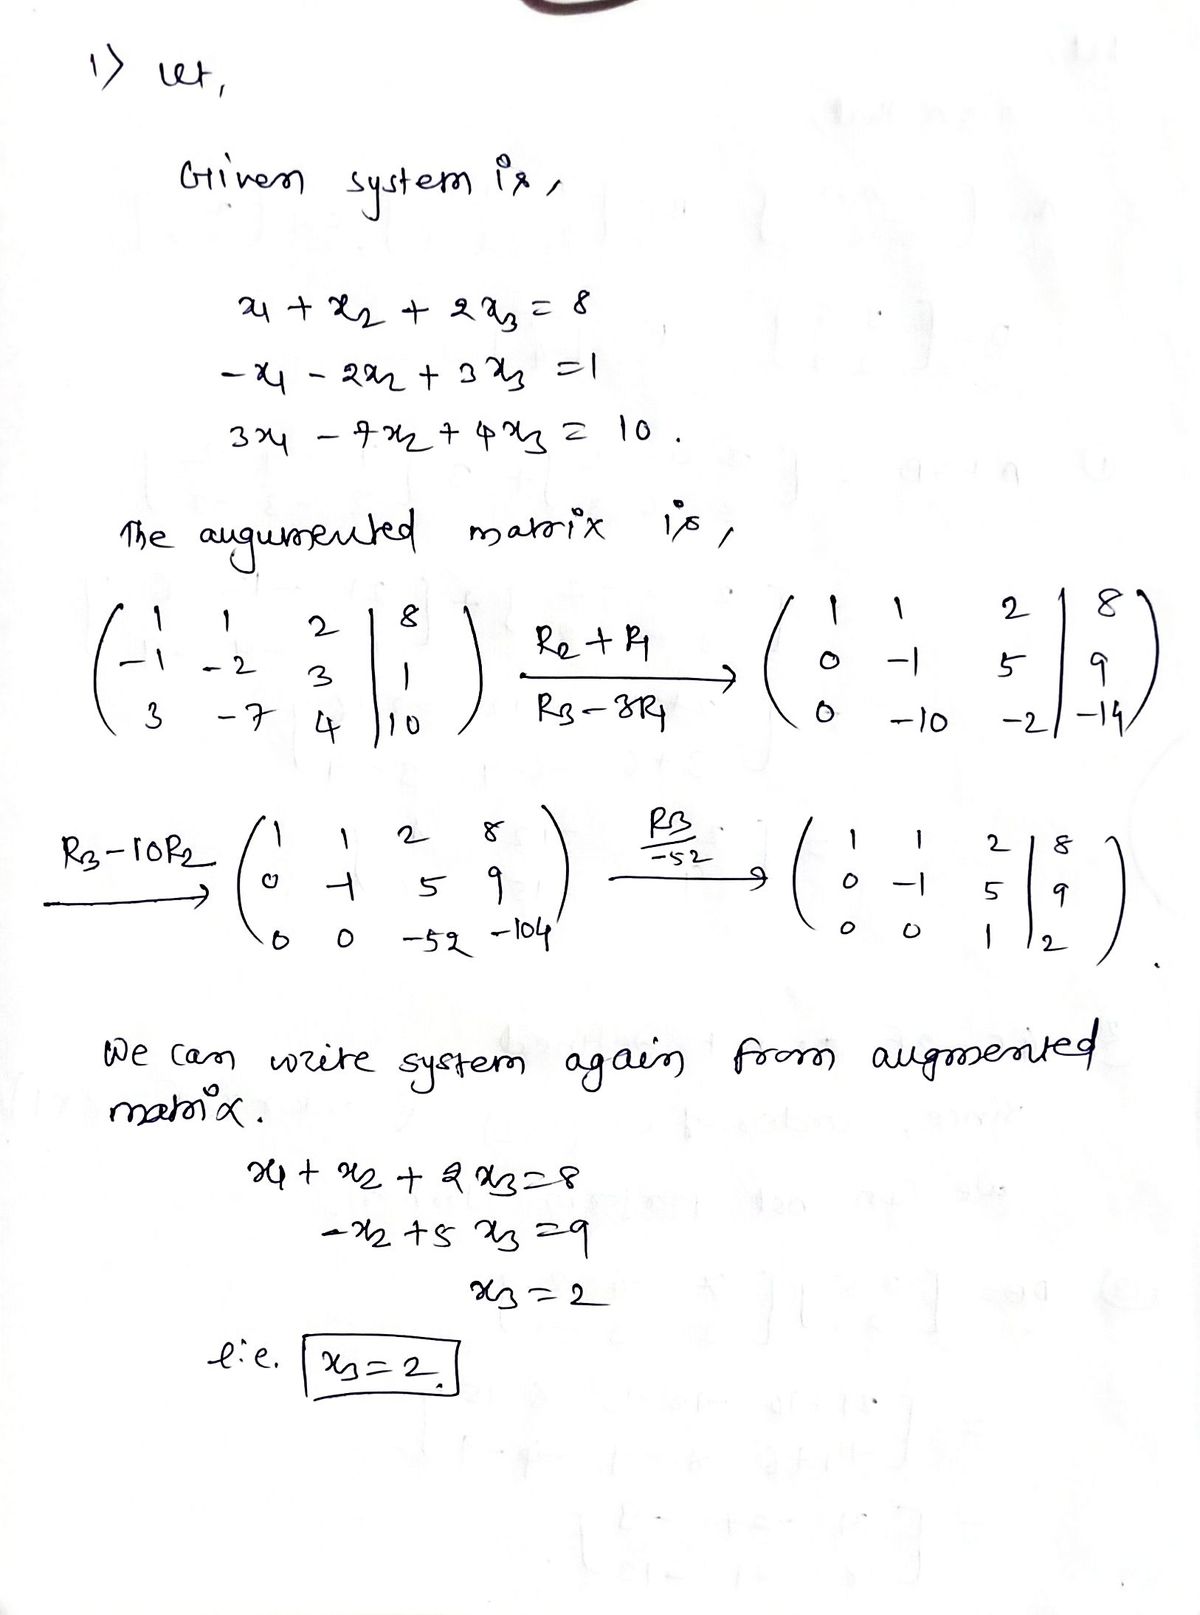 1) let,
Given system is,
x₁ + x₂ + 2x₃ = 8
-x₁ - 2x₂ + 3x₃ = 1
3x₁ - 7x₂ + 4x₃ = 10.
The augumented matrix is,
( 1 1 2 | 8 ) R₂ + R₁ ( 1 1 2 | 8 )
( -1 -2 3 | 1 ) → ( 0 -1 5 | 9 )
( 3 -7 4 | 10 ) R₃ - 3R₁ ( 0 -10 -2 | -14 )
R₃ - 10R₂ ( 1 1 2 8 ) R₃/-52 ( 1 1 2 | 8 )
→ ( 0 -1 5 9 ) → ( 0 -1 5 | 9 )
( 0 0 -52 -104 ) ( 0 0 1 | 2 ).
We can write system again from augmented
matrix.
x₁ + x₂ + 2x₃ = 8
-x₂ + 5x₃ = 9
x₃ = 2
i.e. x₃ = 2.